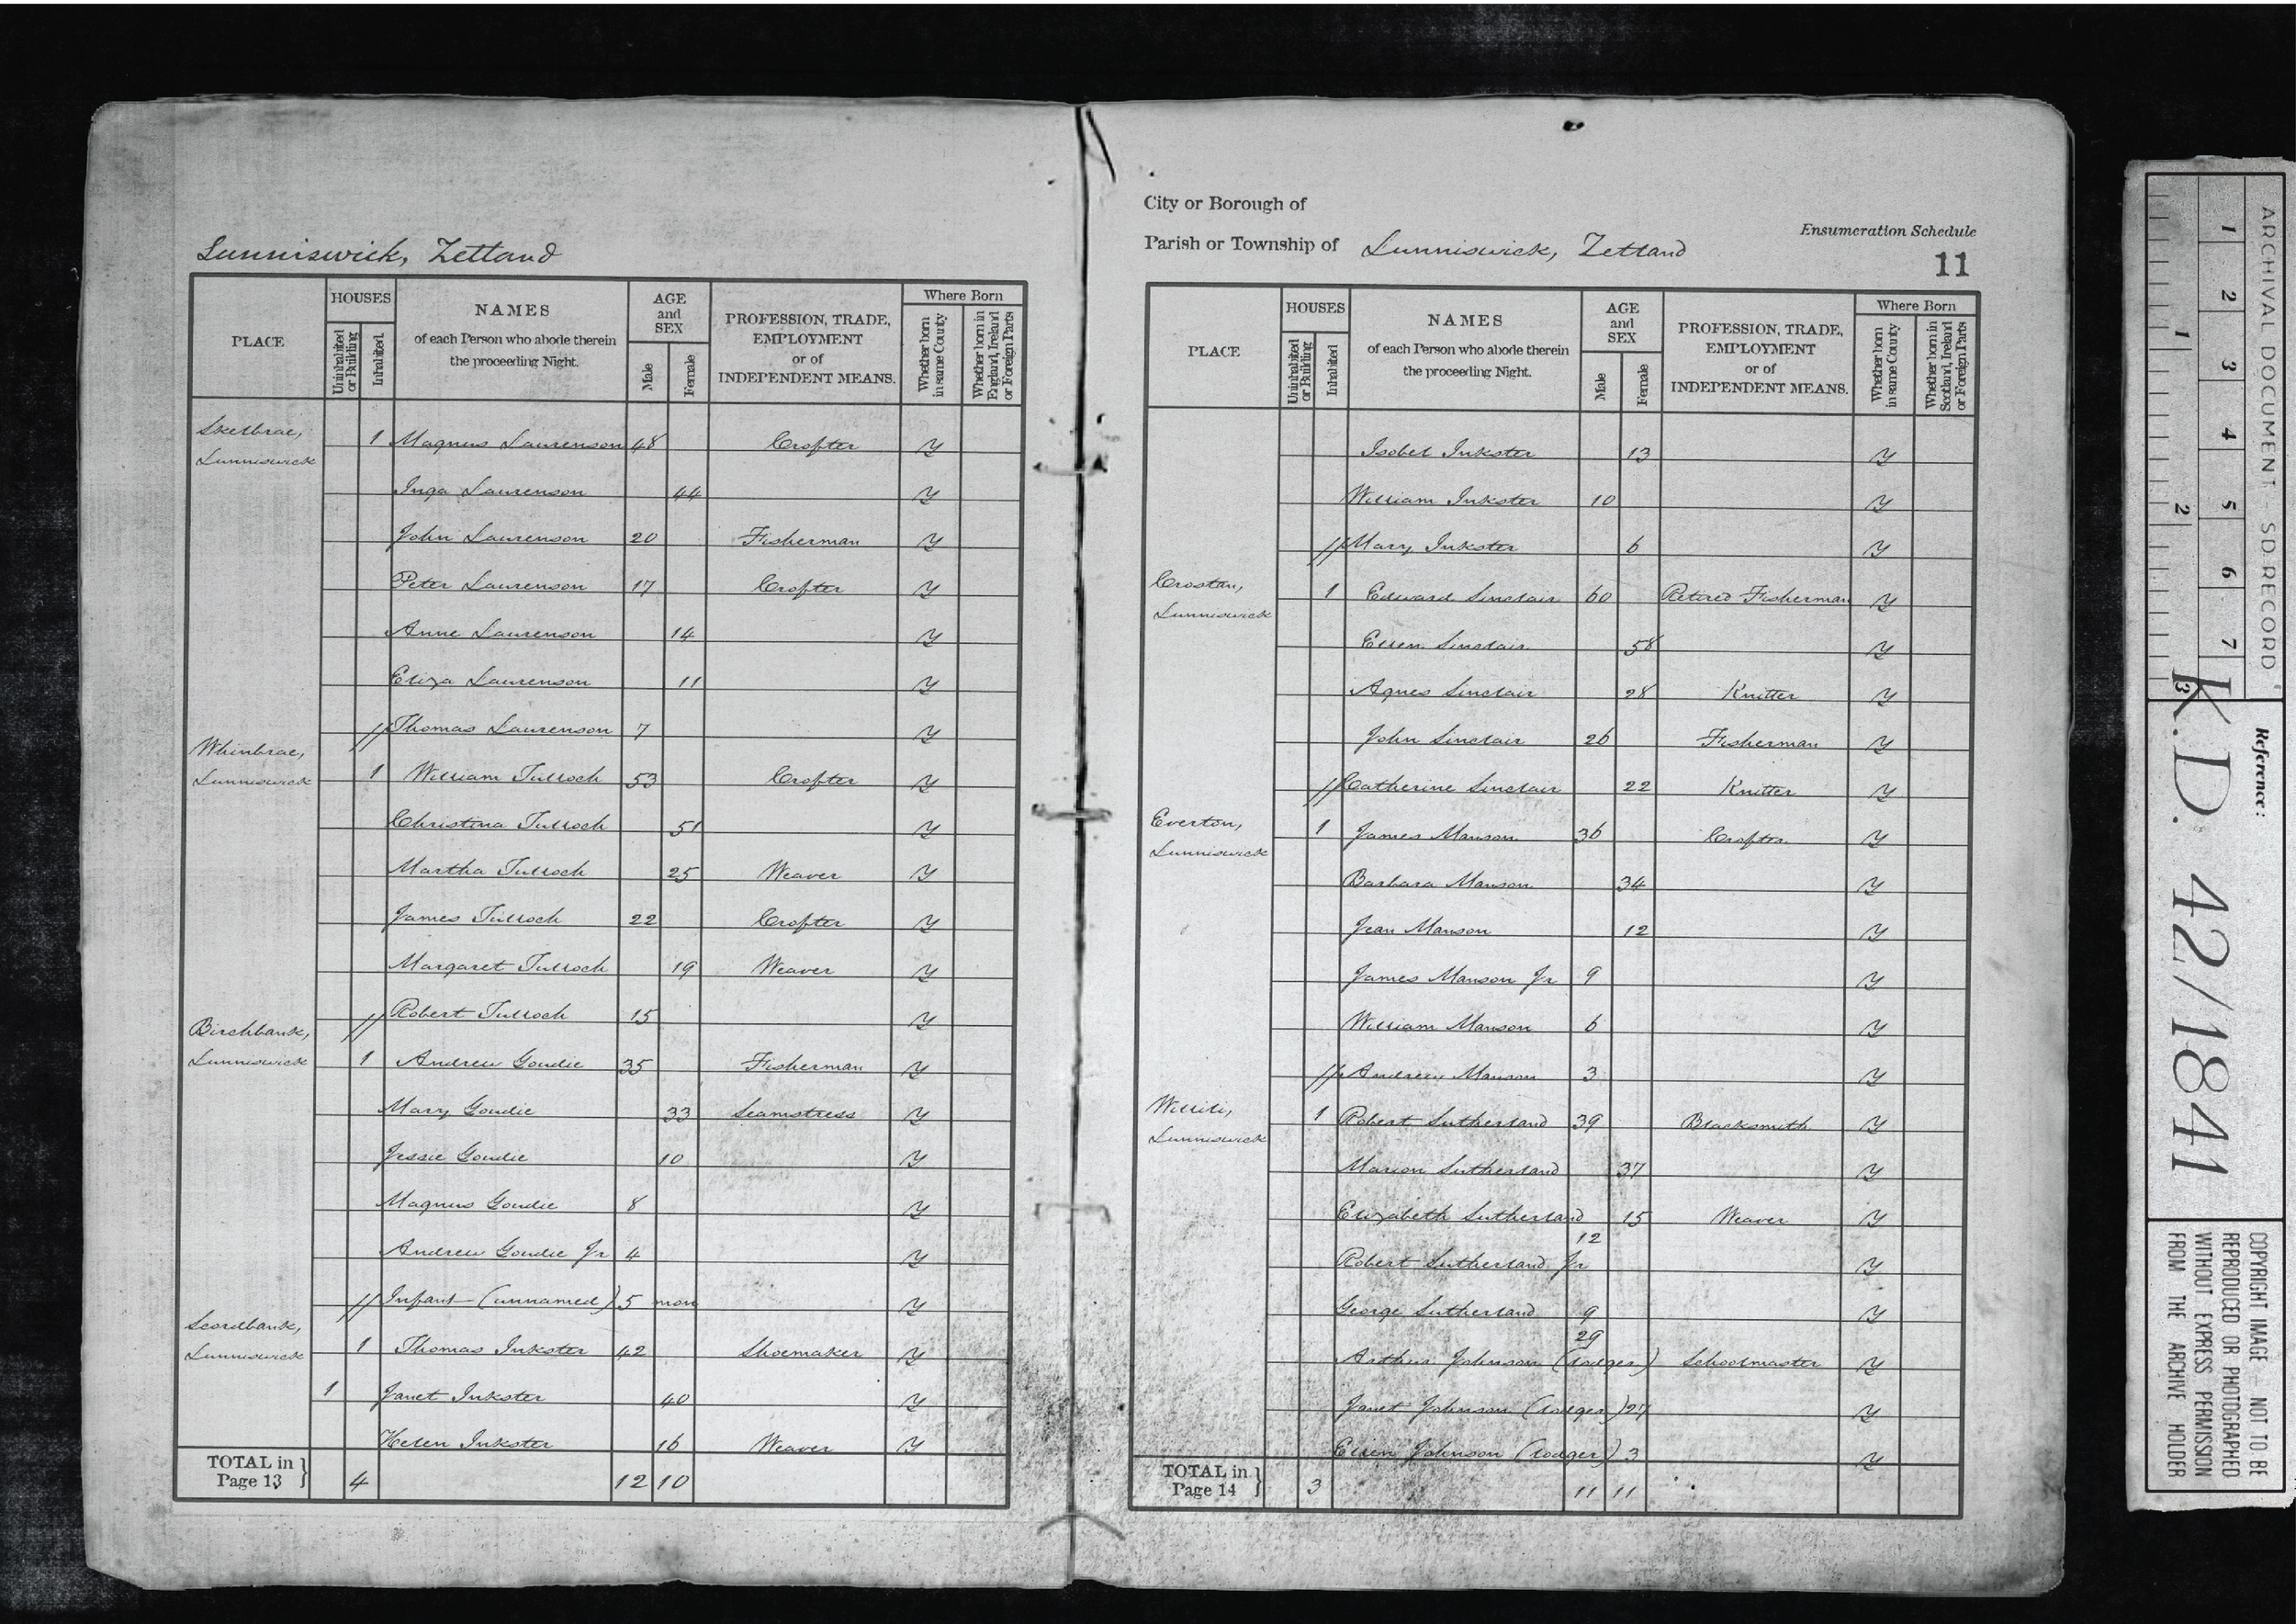 Lunniswick, Zetland
PLACE
HOUSES
Uninhabited or Building
Inhabited.
NAMES
of each Person who abode therein
the proceeding Night.
AGE
and
SEX
Male
Female
PROFESSION, TRADE,
EMPLOYMENT
or of
INDEPENDENT MEANS.
Where Born
Whether born in same County
Whether born in England, Ireland or Foreign Parts
Skelbrae,
Lunniswick
1 Magnus Laurenson 48 Crofter Y
Inga Laurenson 44 Y
John Laurenson 20 Fisherman Y
Peter Laurenson 17 Crofter Y
Anne Laurenson 14 Y
Eliza Laurenson 11 Y
// Thomas Laurenson 7 Y
Whinbrae,
Lunniswick
1 William Tulloch 53 Crofter Y
Christina Tulloch 51 Y
Martha Tulloch 25 Weaver Y
James Tulloch 22 Crofter Y
Margaret Tulloch 19 Weaver Y
// Robert Tulloch 15 Y
Birchbank,
Lunniswick
1 Andrew Goudie 35 Fisherman Y
Mary Goudie 33 Seamstress Y
Jessie Goudie 10 Y
Magnus Goudie 8 Y
Andrew Goudie Jr 4 Y
// Infant (unnamed) 5 mon Y
Scordbank,
Lunniswick
1 Thomas Inkster 42 Shoemaker Y
1 Janet Inkster 40 Y
Helen Inkster 16 Weaver Y
TOTAL in
Page 13 } 4 12 10
City or Borough of
Parish or Township of Lunniswick, Zetland
Ensumeration Schedule
11
PLACE
HOUSES
Uninhabited or Building
Inhabited.
NAMES
of each Person who abode therein
the proceeding Night.
AGE
and
SEX
Male
Female
PROFESSION, TRADE,
EMPLOYMENT
or of
INDEPENDENT MEANS.
Where Born
Whether born in same County
Whether born in Scotland, Ireland or Foreign Parts
Isobel Inkster 13 Y
William Inkster 10 Y
// Mary Inkster 6 Y
Crostan,
Lunniswick
1 Edward Sinclair 60 Retired Fisherman Y
Ellen Sinclair 58 Y
Agnes Sinclair 28 Knitter Y
John Sinclair 26 Fisherman Y
// Catherine Sinclair 22 Knitter Y
Everton,
Lunniswick
1 James Manson 36 Crofter Y
Barbara Manson 34 Y
Jean Manson 12 Y
James Manson Jr 9 Y
William Manson 6 Y
// Andrew Manson 3 Y
Lunniswick
1 Robert Sutherland 39 Blacksmith Y
Marion Sutherland 37 Y
Elizabeth Sutherland 15 Weaver Y
Robert Sutherland Jr 12 Y
George Sutherland 9 Y
Arthur Johnson (lodger) 29 Schoolmaster Y
Janet Johnson (lodger) 27 Y
Ellen Johnson (lodger) 3 Y
TOTAL in
Page 14 } 3 11 11
ARCHIVAL DOCUMENT - SD.RECORD
1 2 3 4 5 6 7
1 2 3
Reference:
K.D. 42/1841
COPYRIGHT IMAGE - NOT TO BE
REPRODUCED OR PHOTOGRAPHED
WITHOUT EXPRESS PERMISSION
FROM THE ARCHIVE HOLDER